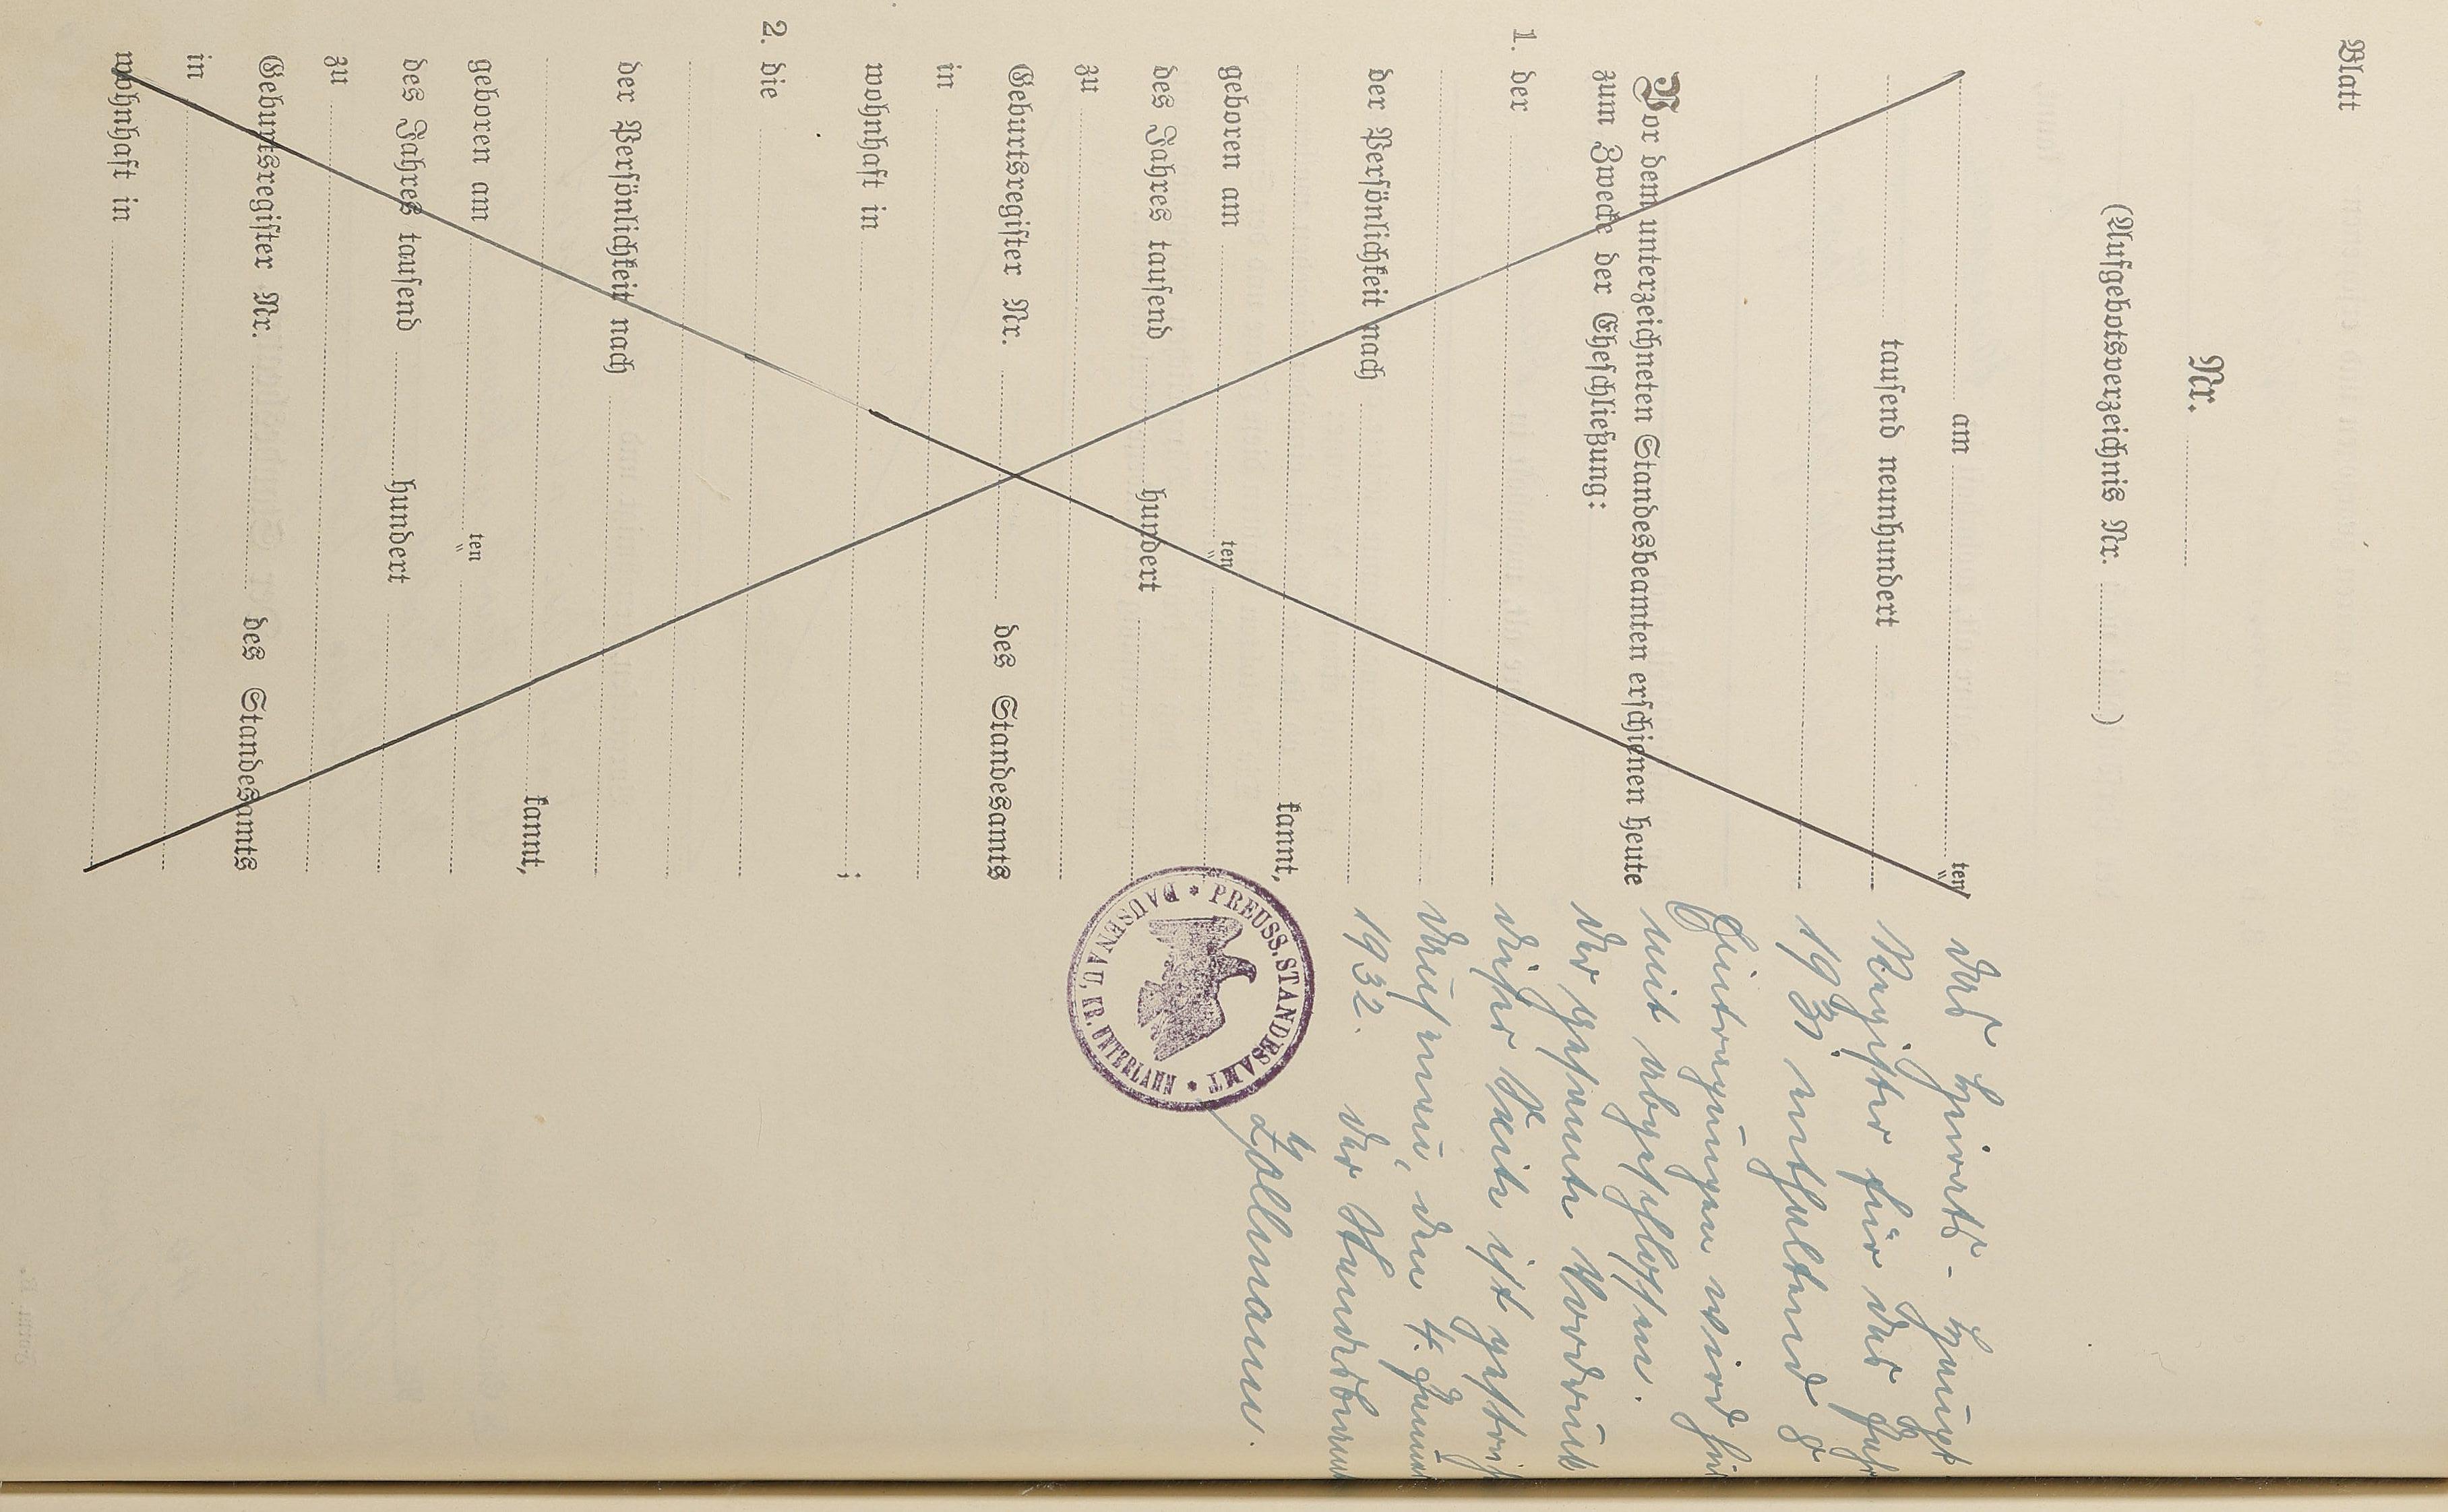 Blatt
Nr.
(Aufgebotsverzeichnis Nr. )
am ten
tausend neunhundert
Vor dem unterzeichneten Standesbeamten erschienen heute
zum Zwecke der Eheschließung:
1. der
der Persönlichkeit nach
kannt,
geboren am ten
des Jahres tausend hundert
zu
Geburtsregister Nr. des Standesamts
in
wohnhaft in
;
2. die
der Persönlichkeit nach
kannt,
geboren am ten
des Jahres tausend hundert
zu
Geburtsregister Nr. des Standesamts
in
wohnhaft in
Das Heirats- Haupt
Register für das Jahr
1931 enthaltend 8
Eintragungen wird hier
mit abgeschlossen.
Der gesamte Vordruck
dieser Seite ist gestri
Dausenau, den 4. Janua
1932. Der Standesbeam
Zöllmann.
PREUSS. STANDESAMT
DAUSENAU, KR. UNTERLAHN